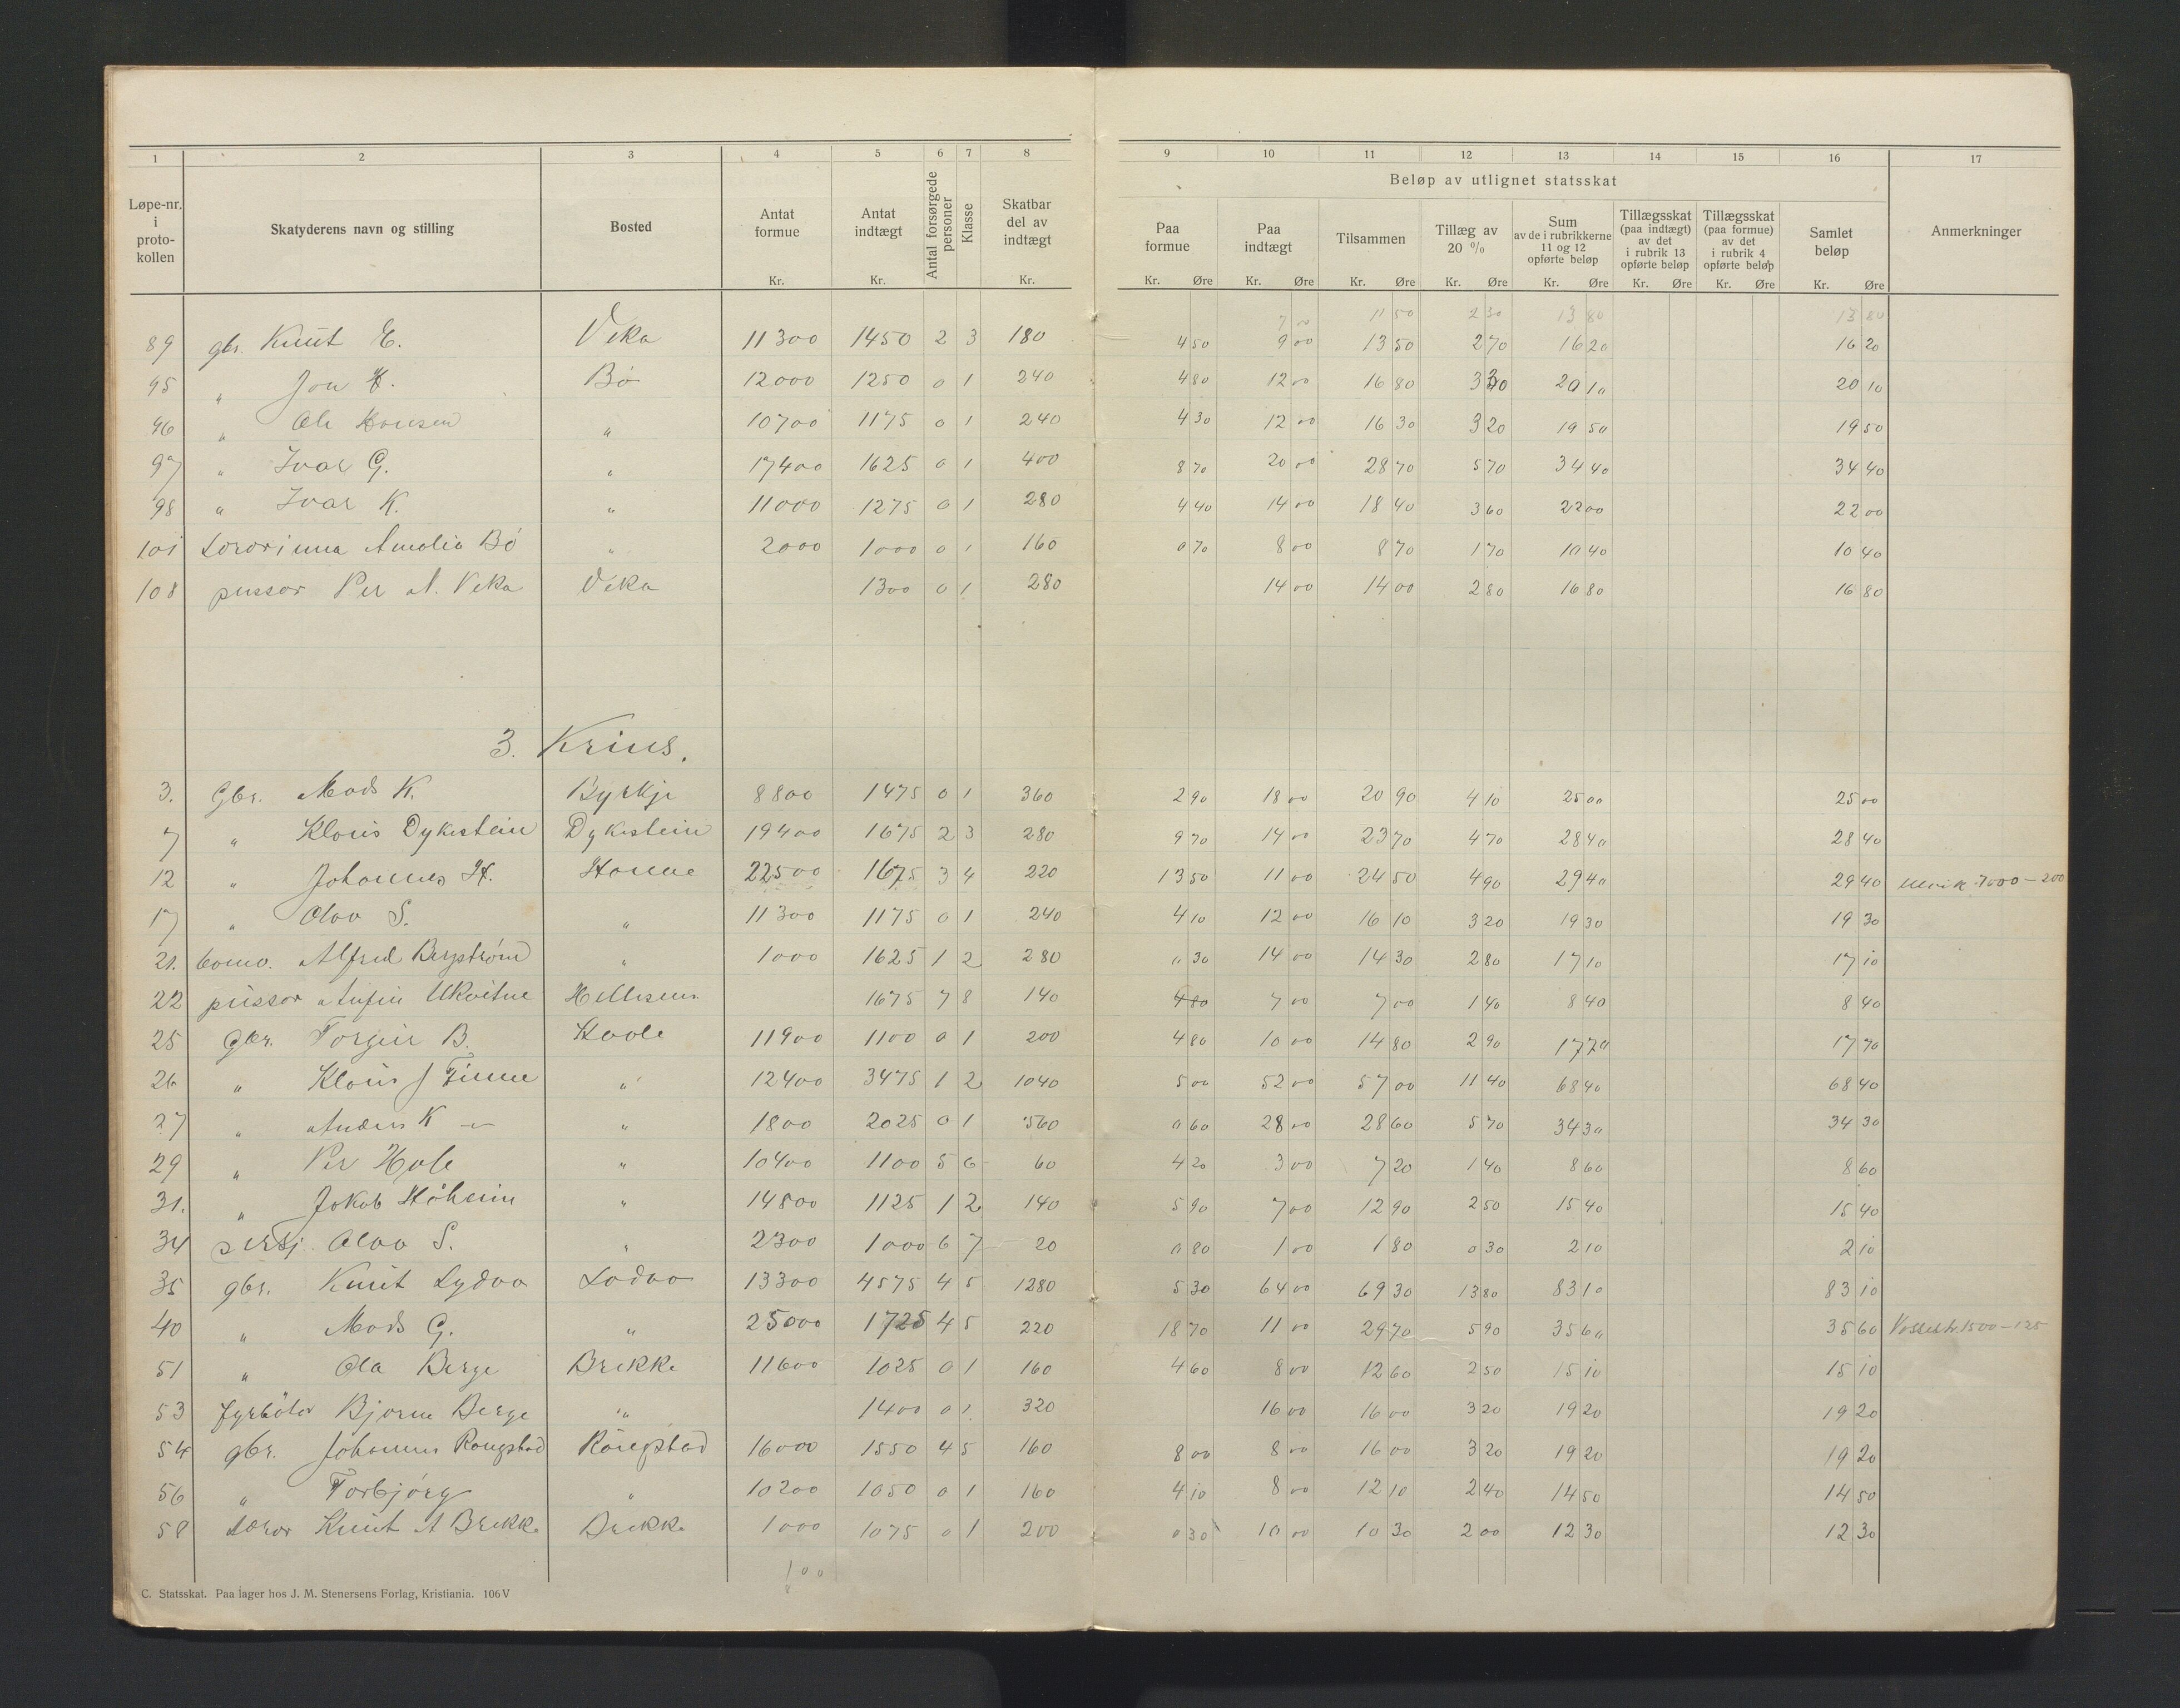 1 2 3 4 5 6 7 8 9 10 11 12 13 14 15 16 17
Beløp av utlignet statsskat
Løpe-nr. i proto-kollen | Skatyderens navn og stilling | Bosted | Antat formue Kr. | Antat indtægt Kr. | Antal forsørgede personer | Klasse | Skatbar del av indtægt Kr. | Paa formue Kr. Øre | Paa indtægt Kr. Øre | Tilsammen Kr. Øre | Tillæg av 20 % Kr. Øre | Sum av de i rubrikkerne 11 og 12 opførte beløp Kr. Øre | Tillægsskat (paa indtægt) av det i rubrik 13 opførte beløp Kr. Øre | Tillægsskat (paa formue) av det i rubrik 4 opførte beløp Kr. Øre | Samlet beløp Kr. Øre | Anmerkninger
7 00 11 50 2 30 13 80 13 80
89 gbr. Knut E. Veka 11300 1450 2 3 180 4 50 9 00 13 50 2 70 16 20 16 20
95 " Jon Bø 12000 1250 0 1 240 4 80 12 00 16 80 3 30 20 10 20 10
96 " Ole " 10700 1175 0 1 240 4 30 12 00 16 30 3 20 19 50 19 50
97 " Ivar G. " 17400 1625 0 1 400 8 70 20 00 28 70 5 70 34 40 34 40
98 " Ivar K. " 11000 1275 0 1 280 4 40 14 00 18 40 3 60 22 00 22 00
101 Lærerinna Amalia Bø " 2000 1000 0 1 160 0 70 8 00 8 70 1 70 10 40 10 40
108 pussar Per A. Veka Veka 1300 0 1 280 14 00 14 00 2 80 16 80 16 80
3. Krins.
3. Gbr. Mads K. Byrkje 8800 1475 0 1 360 2 90 18 00 20 90 4 10 25 00 25 00
7 " Klaus Dykestein Dykestein 19400 1675 2 3 280 9 70 14 00 23 70 4 70 28 40 28 40
12 " Johannes H. Horne 22500 1675 3 4 220 13 50 11 00 24 50 4 90 29 40 29 40 Ulvik 7000 – 200
17 " Olav S. " 11300 1175 0 1 240 4 10 12 00 16 10 3 20 19 30 19 30
21. Alfred Bergstrøm " 1000 1625 1 2 280 0 30 14 00 14 30 2 80 17 10 17 10
22 pussar 1675 7 8 140 4 80 7 00 7 00 1 40 8 40 8 40
25 Gbr. Torgeir B. Hoole 11900 1100 0 1 200 4 80 10 00 14 80 2 90 17 70 17 70
26 " Klaus J Finne " 12400 3475 1 2 1040 5 00 52 00 57 00 11 40 68 40 68 40
27 " Anders K — " 1800 2025 0 1 560 0 60 28 00 28 60 5 70 34 30 34 30
29 " Per Hole " 10400 1100 5 6 60 4 20 3 00 7 20 1 40 8 60 8 60
31. " Jakob Høheim " 14800 1125 1 2 140 5 90 7 00 12 90 2 50 15 40 15 40
34 Olav S. " 2300 1000 6 7 20 0 80 1 00 1 80 0 30 2 10 2 10
35 gbr. Knut Lydva Lydva 13300 4575 4 5 1280 5 30 64 00 69 30 13 80 83 10 83 10
40 " Mads G. " 25000 1725 4 5 220 18 70 11 00 29 70 5 90 35 60 35 60 Vossestr. 1500 – 125
51 " Ola Berge Brekke 11600 1025 0 1 160 4 60 8 00 12 60 2 50 15 10 15 10
53 fyrbøtar Bjarne Berge " 1400 0 1 320 16 00 16 00 3 20 19 20 19 20
54 gbr. Johannes Rongstad Rongstad 16000 1550 4 5 160 8 00 8 00 16 00 3 20 19 20 19 20
56 " Torbjørg " 10200 1050 0 1 160 4 10 8 00 12 10 2 40 14 50 14 50
58 Lærar Knut A Brekke Brekke 1000 1075 0 1 200 0 30 10 00 10 30 2 00 12 30 12 30
C. Statsskat. Paa lager hos J. M. Stenersens Forlag, Kristiania. 106 V